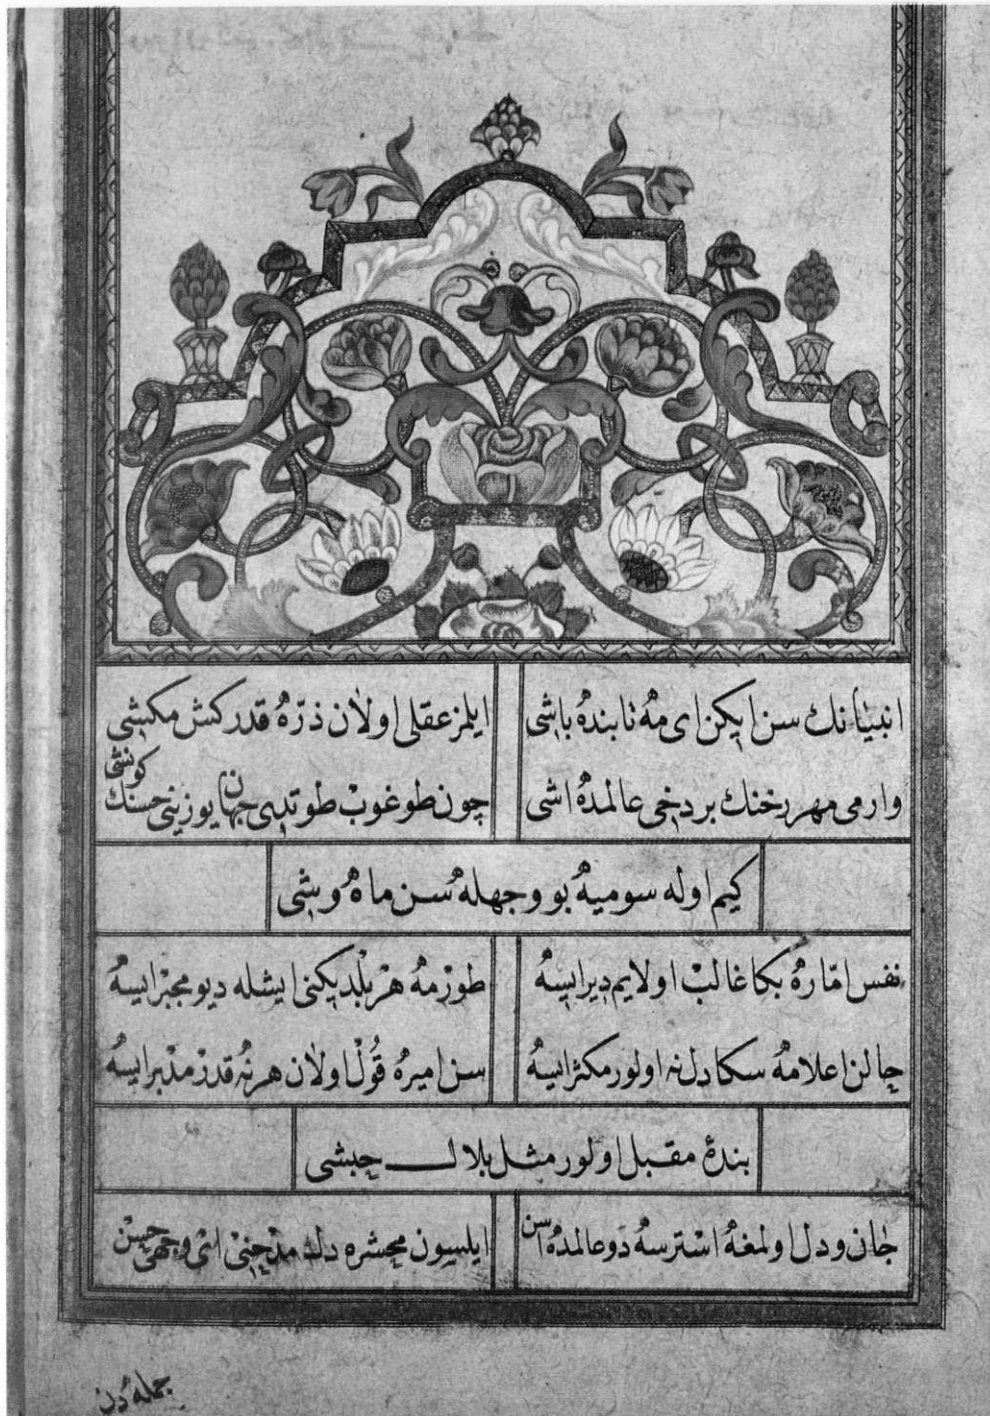 انبیانك سن ایكن ای مه تابنده باشی
ایلمز عقلی اولان ذرّه قدر كش مكشی
وارمی مهر رخنك بر دخی عالمده اشی
چون طوغوب طوتدی جهان یوزینی حسنك كونشی
كیم اوله سومیه بو وجهله سن ماه وشی
نفس امّاره بكا غالب اولایم دیر ایسه
طورمه هر بلدیكنی ایشله دیو مجبر ایسه
چالن اعلامه سكا دل نه اولور مكثر ایسه
سن امیره قول اولان هر نه قدر مدبر ایسه
بندهٔ مقبل اولور مثل بلال حبشی
جان و دل اولمغه استرسه دو عالمده اسن
ایلسون محشره دك مدحنی ای وجهی حسن
جمله دن